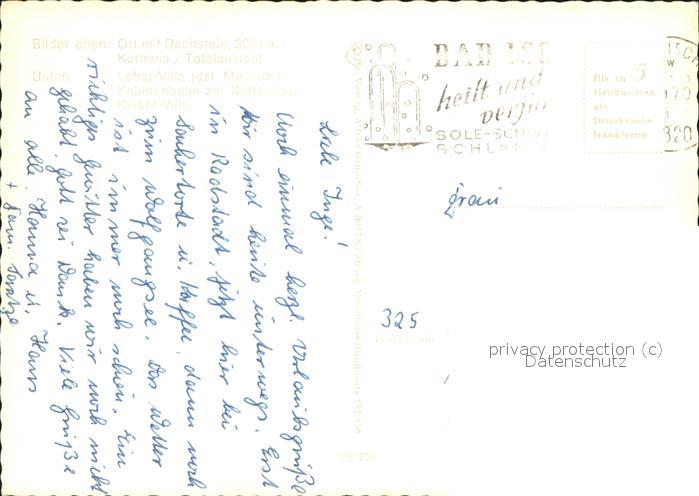 Bilder oben: Ort mit Dachstein, 3004 m
Kurhaus / Totalansicht
Unten: Lehar-Villa (dzt. Museum)
Kabinenbahn zur Katrin
Kaiser-Villa
BAD ISC
heilt und
verjün
SOLE-SCHW
SCHLAM
Bis zu 5
Grußworten
als
Drucksache
frankieren
Liebe Inge!
Noch einmal herzl. Urlaubsgrüße
Wir sind heute unterwegs. Erst
in Radstadt, jetzt hier bei
Sachertorte u. Kaffee, dann noch
zum Wolfgangsee. Das Wetter
ist immer noch schön. Ein
richtiges Gewitter haben wir noch nicht
gehabt, gott sei Dank. Viele Grüße
an alle, Hanna u. Hans
+ Fam.
Frau
325
Postleitzahl
PS 730
privacy protection (c)
Datenschutz